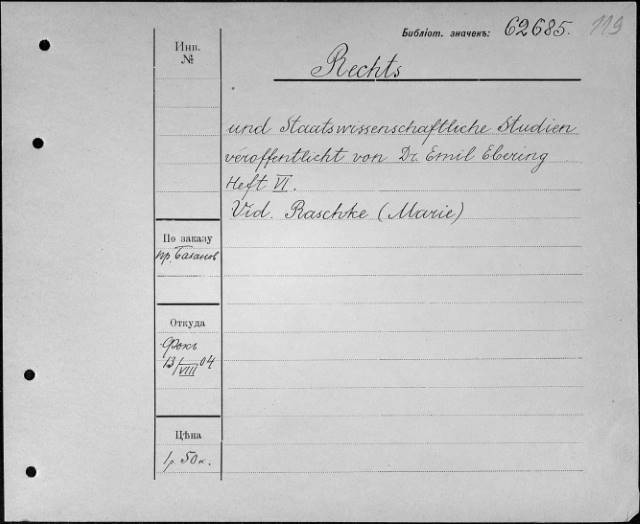 Библіот. значекъ: 62685. 119
Инв.
№
Rechts
und Staatswissenschaftliche Studien
veröffentlicht von Dr. Emil Ebering
Heft VI.
Vid. Raschke (Marie)
По заказу
пр.
Откуда
Фокъ
13/VIII 04
Цѣна
1р. 50к.